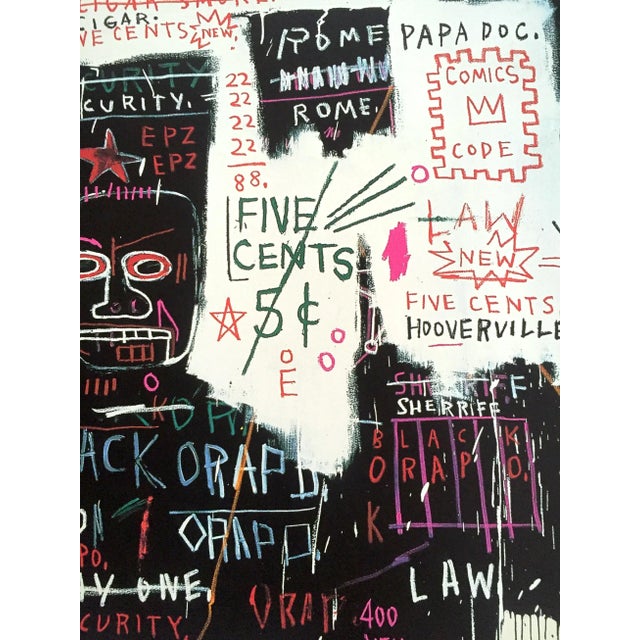 CIGAR:
VE CENTS NEW.
ROME
ROME.
PAPA DOC.
COMICS
CODE
CURITY
CURITY.
EPZ
EPZ
22
22
22
22
88.
FIVE
CENTS
5¢
O
E
LAW
NEW
FIVE CENTS
HOOVERVILLE
SHERRIFF
BLACK
ORAP O.
K
ACK ORAP D.
ORAP D.
PO.
AY ONE.
LAW
CURITY.
ORAP
400